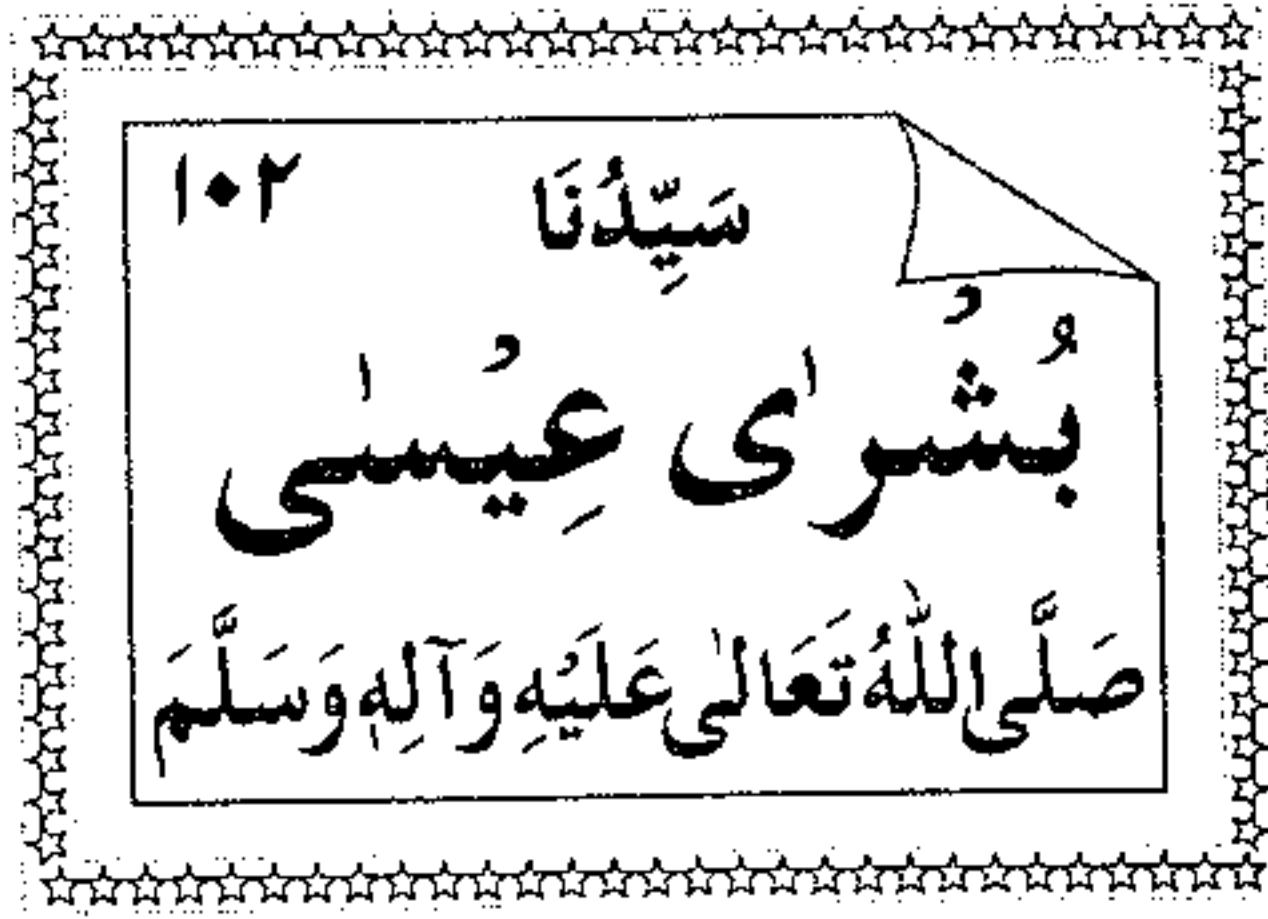 سَيِّدُنَا ١٠٢
بُشْرٰى عِيْسٰى
صَلَّى اللّٰهُ تَعَالٰى عَلَيْهِ وَآلِهٖ وَسَلَّمَ